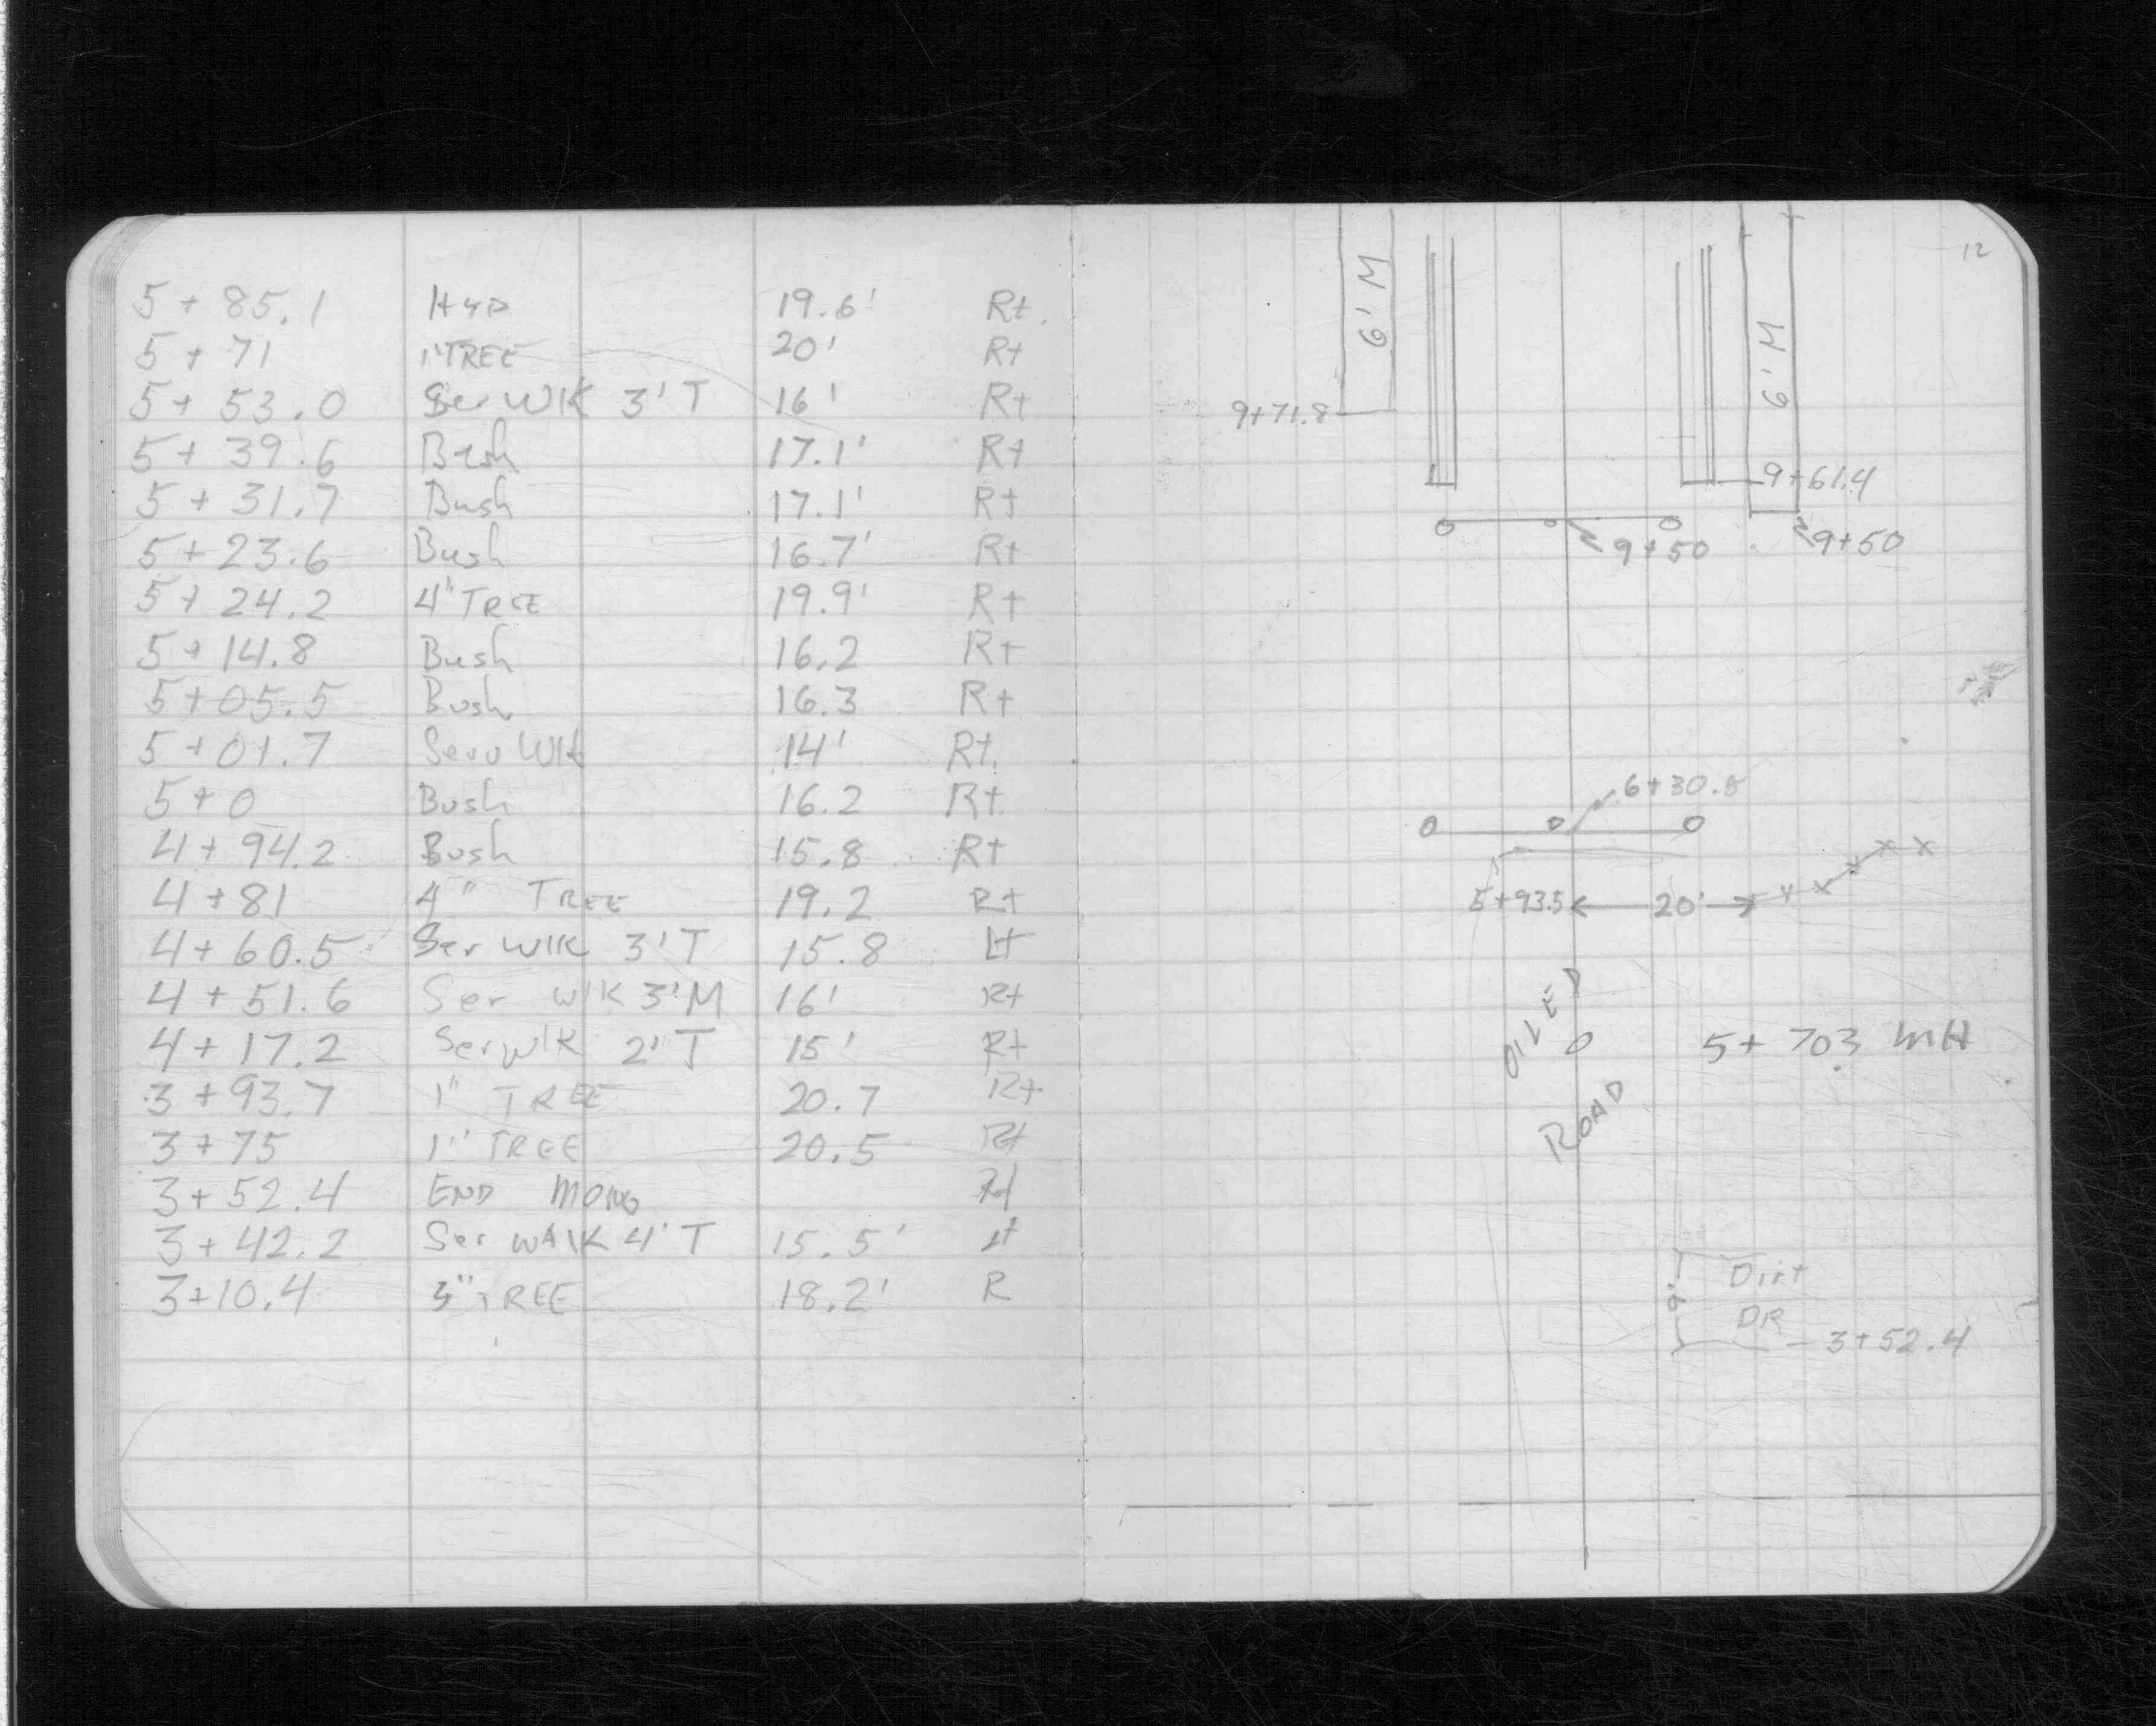 5 + 85.1 Hyd 19.6' Rt.
5 + 71 1" TREE 20' Rt
5 + 53.0 Ser WlK 3' T 16' Rt
5 + 39.6 Bush 17.1' Rt
5 + 31.7 Bush 17.1' Rt
5 + 23.6 Bush 16.7' Rt
5 + 24.2 4" TREE 19.9' Rt
5 + 14.8 Bush 16.2 Rt
5 + 05.5 Bush 16.3 Rt
5 + 01.7 Serv Wlk 14' Rt.
5 + 0 Bush 16.2 Rt.
4 + 94.2 Bush 15.8 Rt
4 + 81 4" TREE 19.2 Rt
4 + 60.5 Ser WlK 3' T 15.8 Lt
4 + 51.6 Ser WlK 3' M 16' Rt
4 + 17.2 Ser WlK 2' T 15' Rt
3 + 93.7 1" TREE 20.7 Rt
3 + 75 1" TREE 20.5 Rt
3 + 52.4 END MONO Rt
3 + 42.2 Ser WAlK 4' T 15.5' Lt
3 + 10.4 3" TREE 18.2' R
12
6' M
6' M
9+71.8
9+61.4
9+50
9+50
6+30.5
5+93.5
20'
OILED
ROAD
5+ 703 MH
9'
Dirt
DR
3+52.4